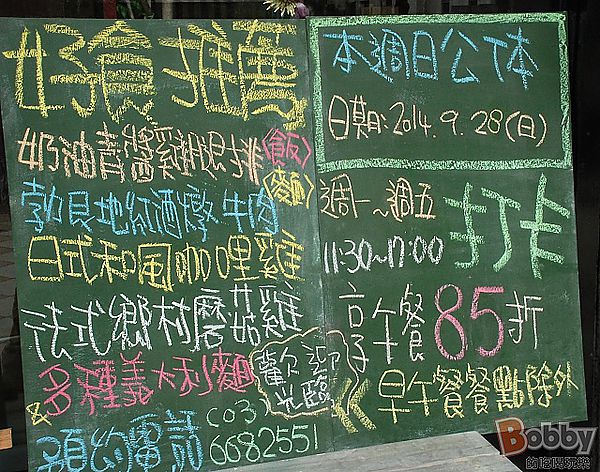 好食推薦
奶油青醬雞腿排(飯)(麵)
勃艮地紅酒燉牛肉
日式和風咖哩雞
法式鄉村磨菇雞
多種義大利麵
& 預約電話 (03) 6682551
歡迎光臨
本週日公休
日期:2014.9.28(日)
週一~週五
11:30~17:00
打卡
享午餐85折
早午餐餐點除外
Bobby